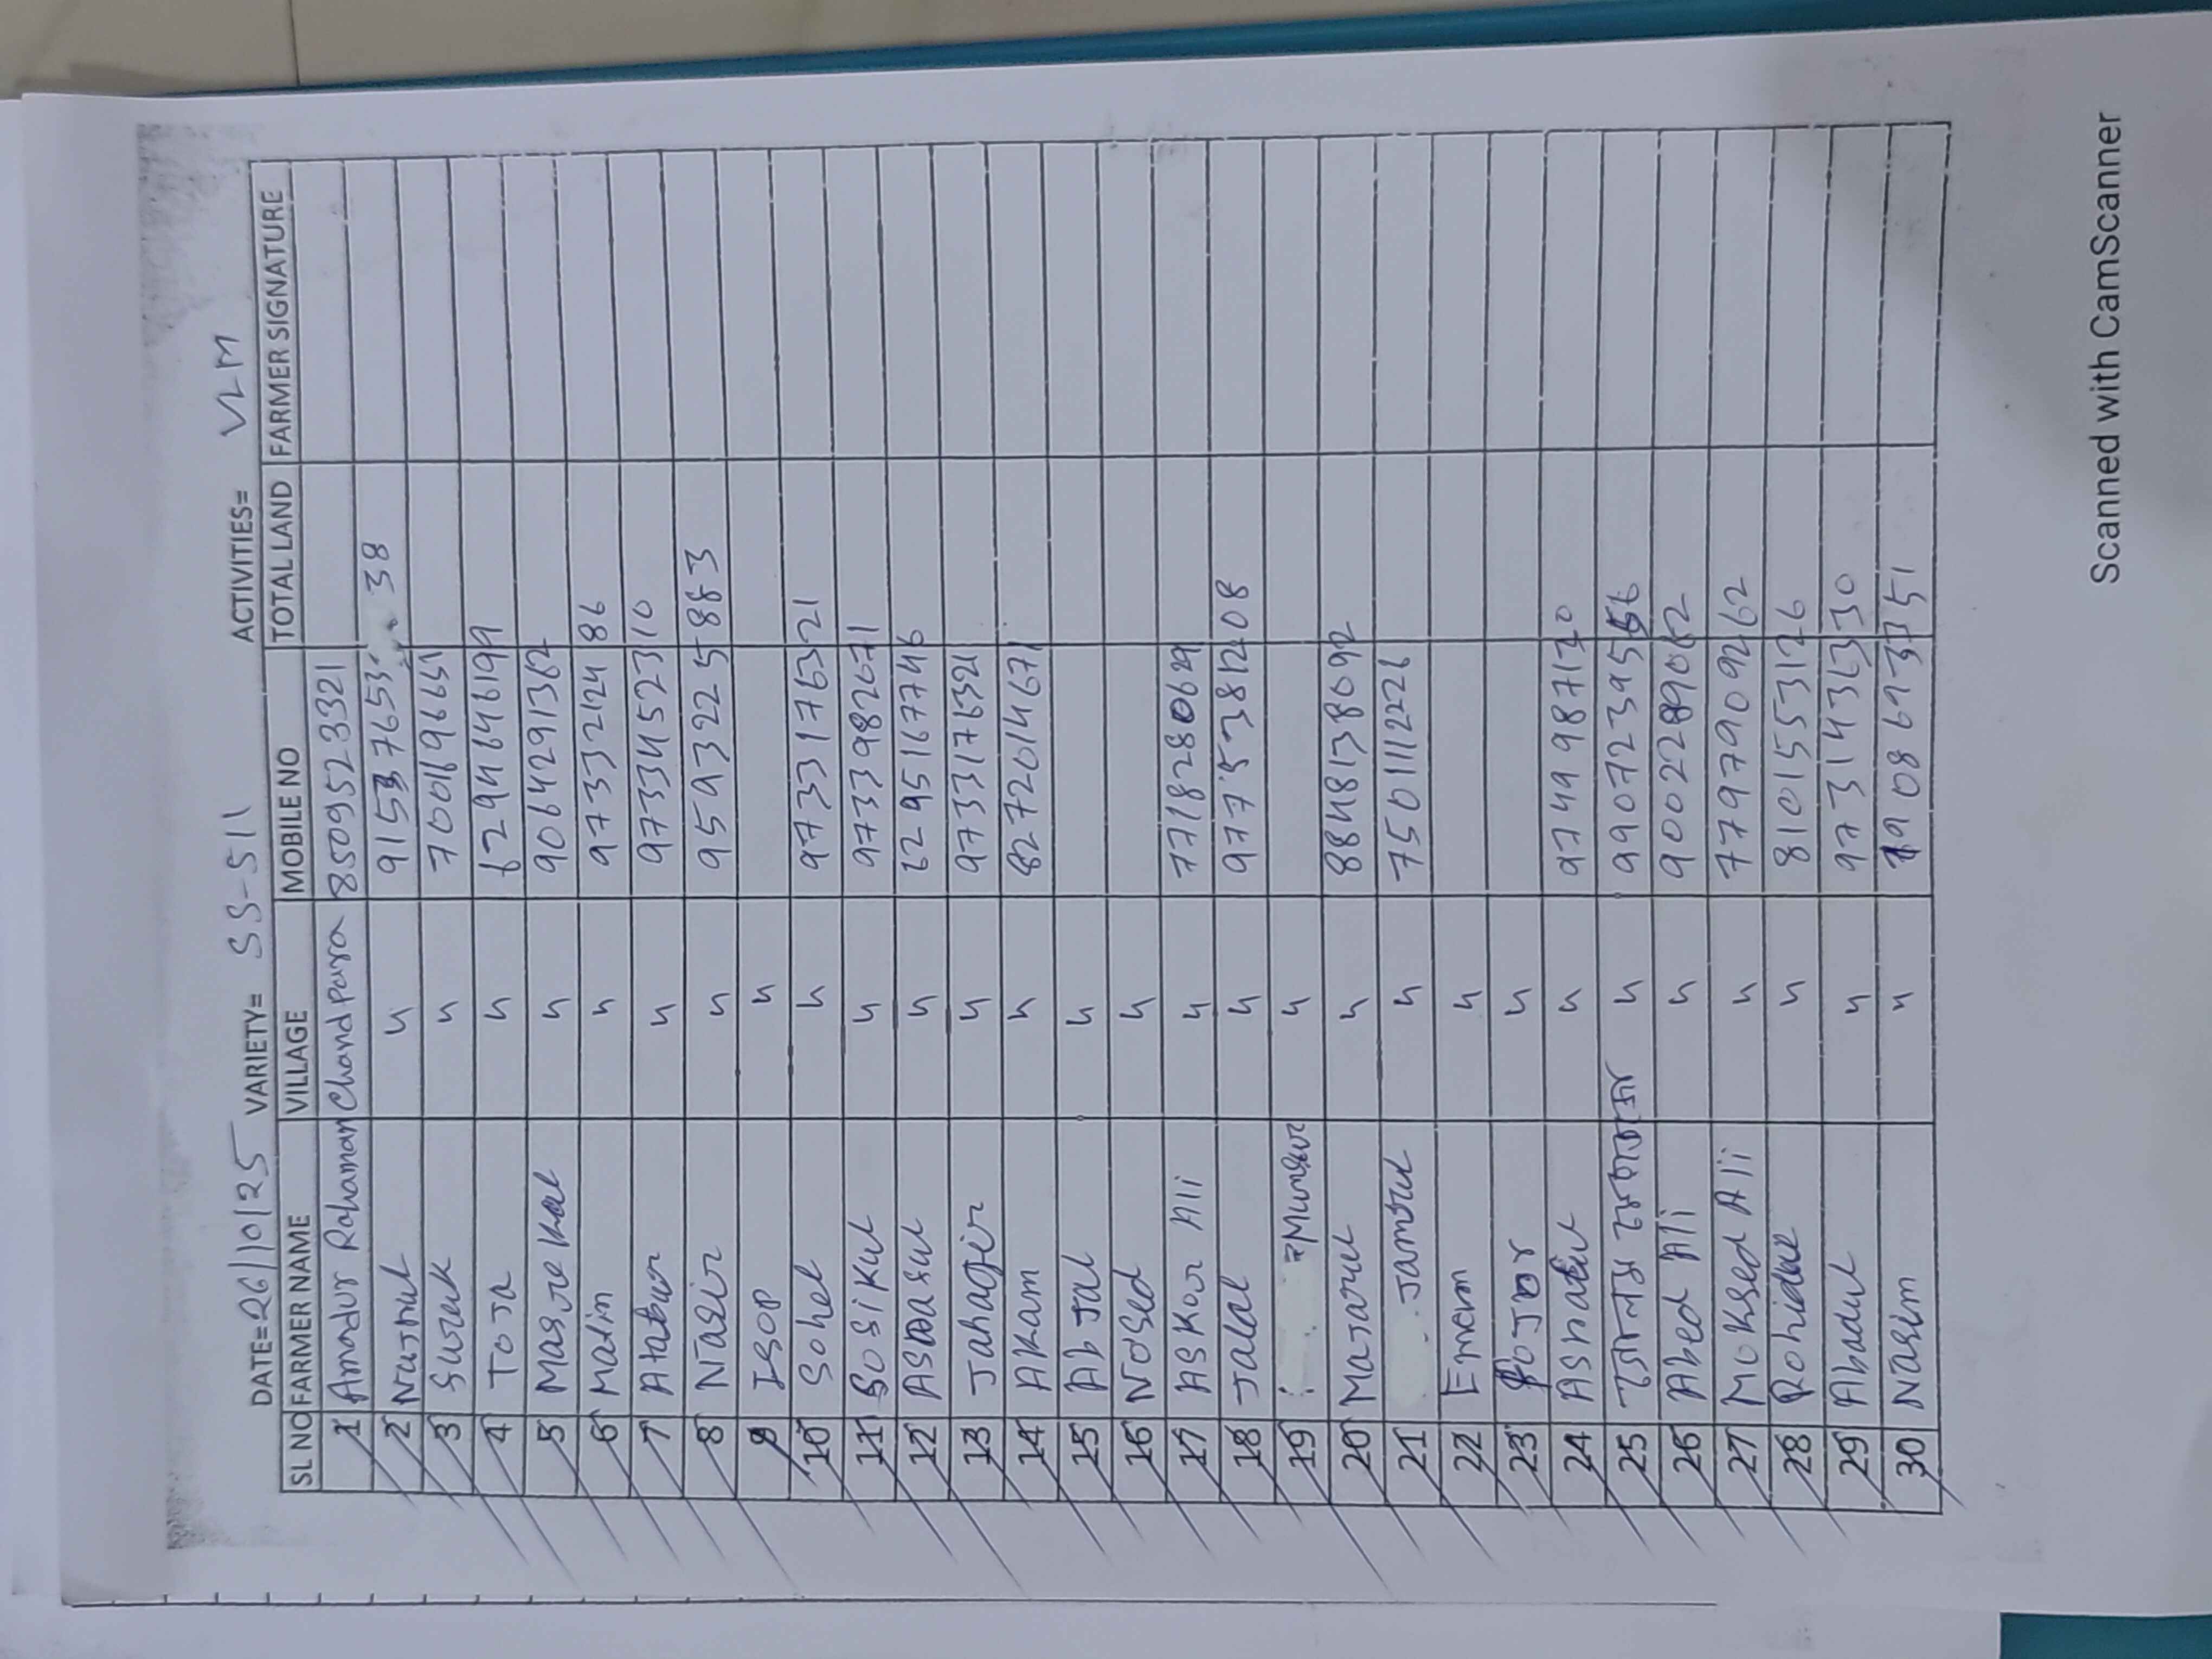 DATE= 26/10/25 VARIETY= SS-511 ACTIVITIES= VLM
SL NO FARMER NAME VILLAGE MOBILE NO TOTAL LAND FARMER SIGNATURE
1 Amadur Rahaman Chand Para 8509523321
2 Najrul " 91537653 38
3 Surak " 7001696651
4 Toja " 6294646199
5 Masrekul " 9064291362
6 Matin " 9733212486
7 Atabur " 9733452310
8 Nasir " 9593225883
9 Isop "
10 Sohel " 9733176321
11 Sosikul " 9733982671
12 Asrasul " 6295167746
13 Jahagir " 9733176321
14 Akam " 8272014671
15 Abjal "
16 Nosed "
17 Askor Ali " 7718280629
18 Jalal " 9775381208
19 Munsur "
20 Majarul " 8848138092
21 Jamrul " 7501112226
22 Emem "
23 Pojor "
24 Asratul " 9749987130
25 " 9907239556
26 Abed Ali " 9002289062
27 Moksed Ali " 7797909262
28 Rohidul " 8101553126
29 Ahadul " 9731436330
30 Nasim " 9086933751
Scanned with CamScanner